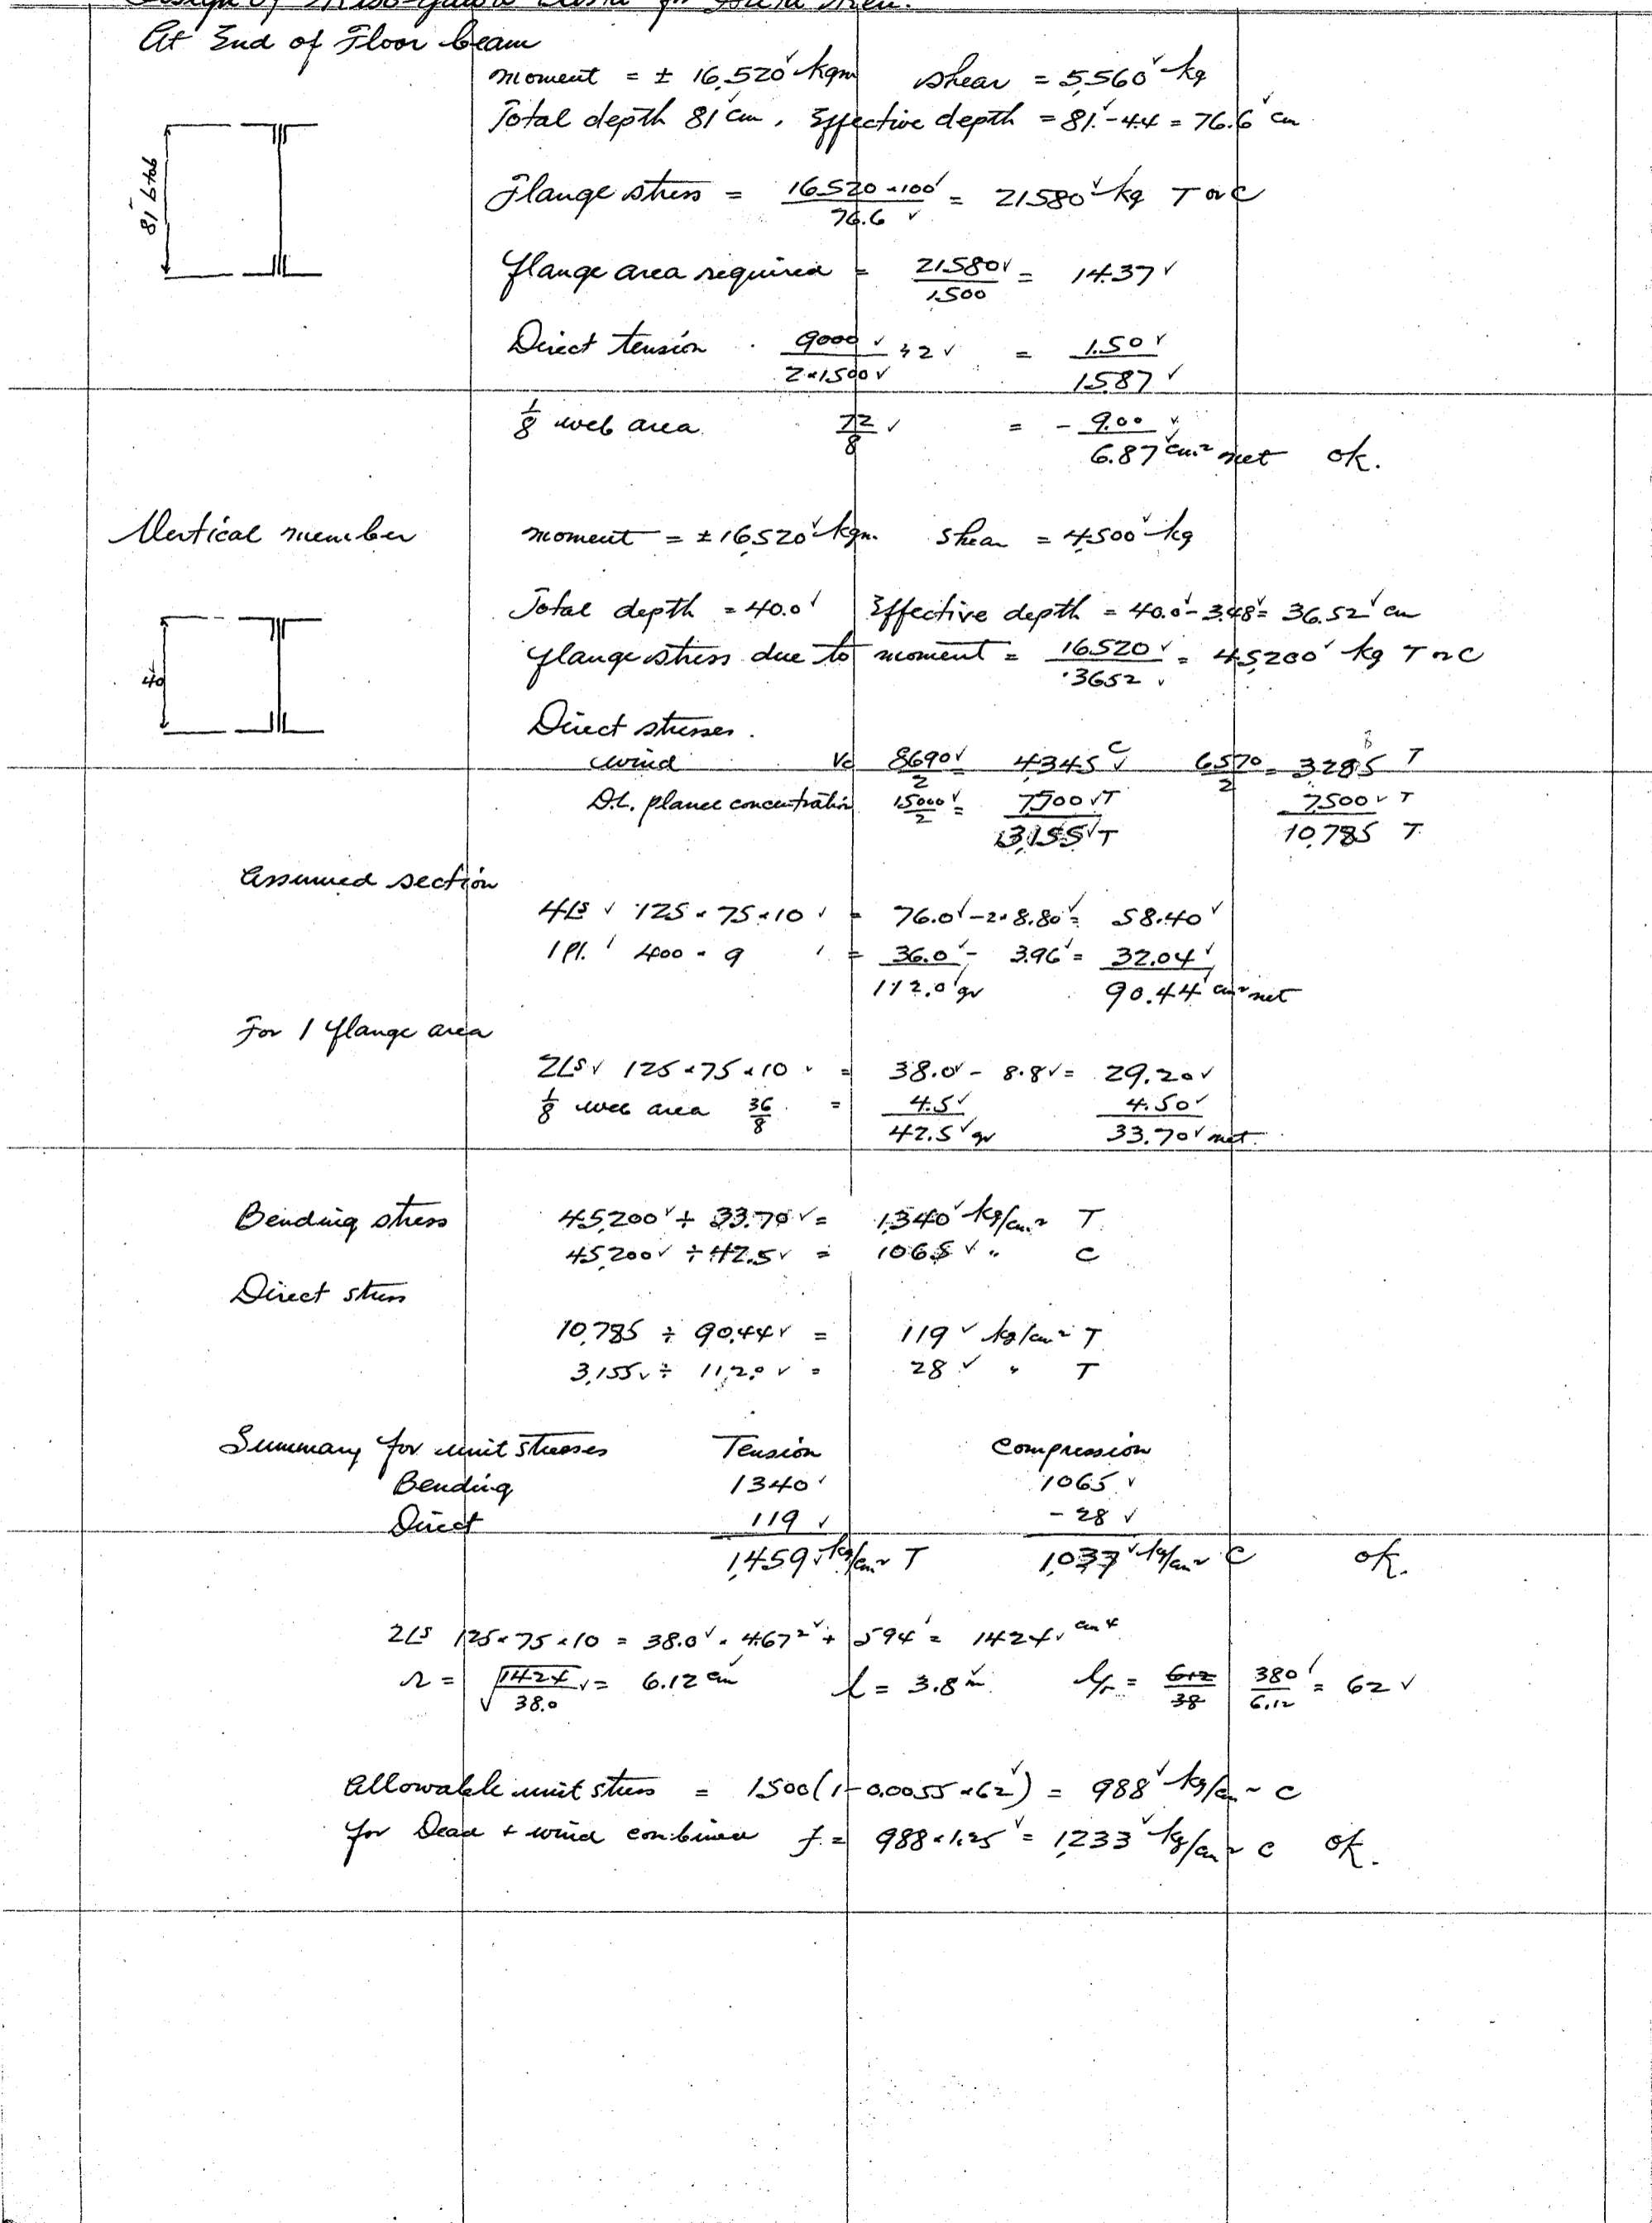 Design of Kiso-gawa
At End of Floor beam
moment = ± 16,520 kgm shear = 5,560 kg
Total depth 81 cm, Effective depth = 81.-4.4 = 76.6 cm
81 btob
Flange stress = 16520×100 / 76.6 = 21580 kg T or C
flange area required = 21580 / 1,500 = 14.37
Direct tension 9000 / 2×1,500 ÷ 2 = 1.50
15.87
1/8 web area. 72/8 = - 9.00
6.87 cm² net ok.
Vertical member moment = ±16,520 kgm. shear = 4,500 kg
Total depth = 40.0 Effective depth = 40.0 - 3.48 = 36.52 cm
40
flange stress due to moment = 16520 / .3652 = 45,200 kg T or C
Direct stresses.
wind 8690/2 4345 C 6570/2 = 3285 T
D.L. concentration 15000/2 = 7,500 T 7,500 T
3,155 T 10,785 T
Assumed section
4Ls 125 × 75 × 10 = 76.0 - 2×8.80 = 58.40
1 Pl. 400 × 9 = 36.0 - 3.96 = 32.04
112.0 gr 90.44 cm² net
For 1 flange area
2Ls 125 × 75 × 10 = 38.0 - 8.8 = 29.20
1/8 web area 36/8 = 4.5 4.50
42.5 gr 33.70 net.
Bending stress 45,200 ÷ 33.70 = 1,340 kg/cm² T
45,200 ÷ 42.5 = 1065 " C
Direct stress
10,785 ÷ 90.44 = 119 kg/cm² T
3,155 ÷ 112.0 = 28 " T
Summary for unit stresses Tension Compression
Bending 1340 1065
Direct 119 - 28
1,459 kg/cm² T 1,037 kg/cm² C ok.
2Ls 125 × 75 × 10 = 38.0 × 4.67² + 594 = 1424 cm⁴
r = √1424/38.0 = 6.12 cm l = 3.8 m. l/r = 6.12/38 380/6.12 = 62
Allowable unit stress = 1500(1-0.0055×62) = 988 kg/cm² C
for Dead + wind combined f = 988×1.25 = 1,233 kg/cm² C ok.